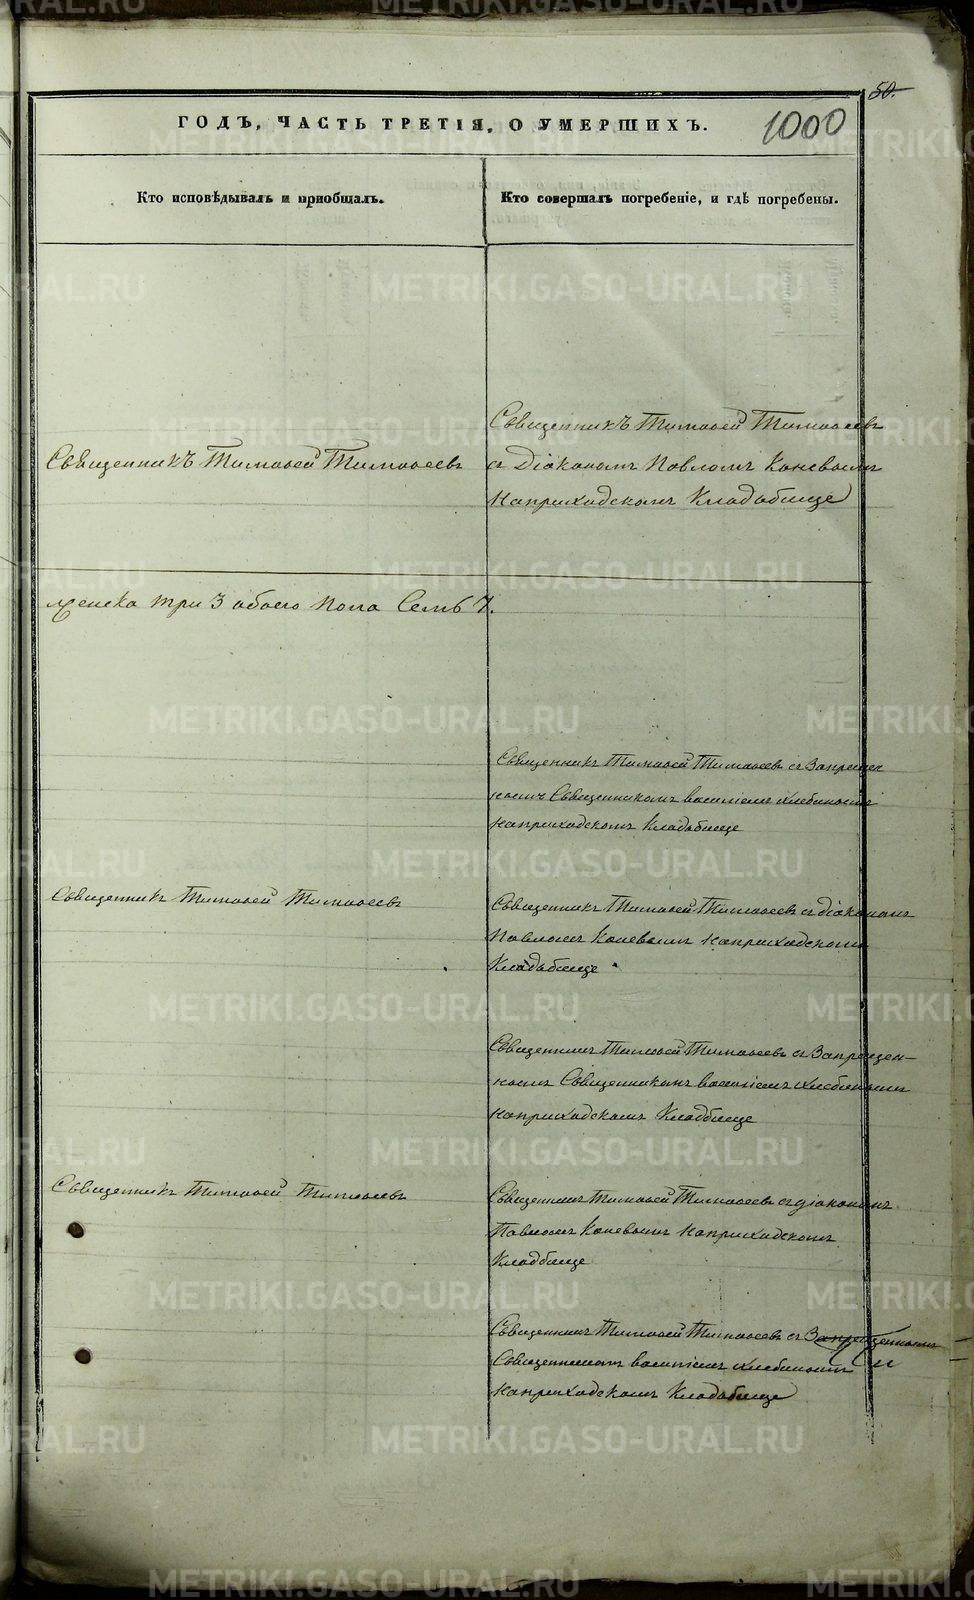 50.
ГОДЪ, ЧАСТЬ ТРЕТІЯ, О УМЕРШИХЪ.
1000
Кто исповѣдывалъ и приобщалъ.
Кто совершалъ погребеніе, и гдѣ погребены.
Священникъ Тимоѳей Тимоѳеевъ
Священникъ Тимоѳей Тимоѳеевъ
съ Діакономъ Павломъ Каневымъ
наприходскомъ Кладбище
женска три 3 обоего пола Семь 7.
Священникъ Тимоѳей Тимоѳеевъ съ Запрещен
нымъ Священникомъ василіемъ
наприходскомъ Кладбище
Священникъ Тимоѳей Тимоѳеевъ
Священникъ Тимоѳей Тимоѳеевъ съ діакономъ
Павломъ Каневымъ наприходскомъ
Кладбище
Священникъ Тимоѳей Тимоѳеевъ съ Запрещен-
нымъ Священникомъ василіемъ
наприходскомъ Кладбище
Священникъ Тимоѳей Тимоѳеевъ
Священникъ Тимоѳей Тимоѳеевъ съ діакономъ
Павломъ Каневымъ наприходскомъ
Кладбище
Священникъ Тимоѳей Тимоѳеевъ съ Запрещеннымъ
Священникомъ василіемъ
наприходскомъ Кладбище
METRIKI.GASO-URAL.RU